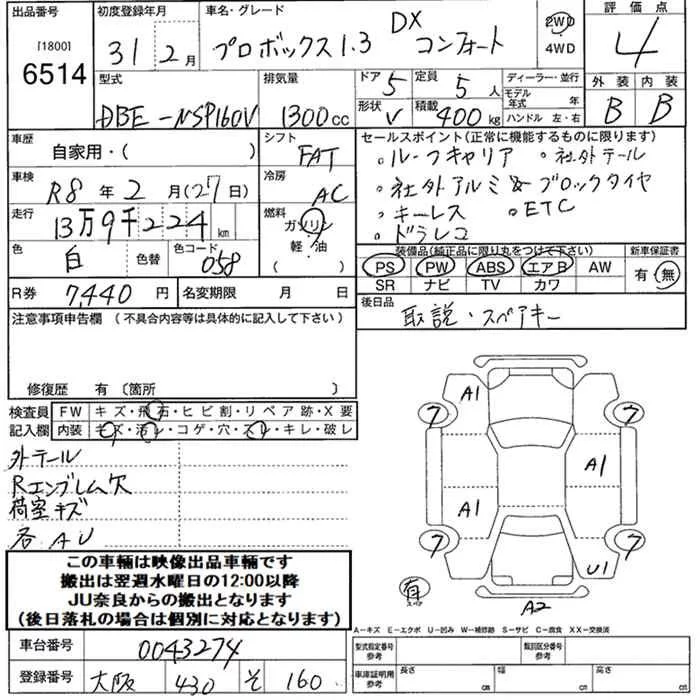 出品番号 初度登録年月 車名・グレード 評価点
[1800] 6514 31 2月 プロボックス1.3 DX コンフォート 2WD 4WD 4
型式 排気量 ドア 5 定員 5人 ディーラー・並行 外装 内装
DBE-NSP160V 1300cc 形状 V 積載 400kg モデル年式 年 ハンドル 左・右 B B
車歴 シフト セールスポイント(正常に機能するものに限ります)
自家用・( ) FAT 。ルーフキャリア 。社外テール
車検 冷房 。社外アルミ& ブロックタイヤ
R8年2月(27日) AC 。キーレス 。ETC
走行 燃料 。ドラレコ
13万9千224km ガソリン
軽・油
( )
色 白 色替 色コード 058
装備品(純正品に限り丸をつけて下さい) 新車保証書
PS PW ABS エアB AW 有・無
SR ナビ TV カワ
R券 7,440円 名変期限 月 日
後日品 取説・スペアキー
注意事項申告欄 (不具合内容等は具体的に記入して下さい)
修復歴 有 〔箇所 〕
検査員 FW キズ・飛石・ヒビ割・リペア跡・X要
記入欄 内装 キズ・汚レ・コゲ・穴・スレ・キレ・破レ
外テール
Rエンブレム欠
荷室キズ
各AU
A1
7 7
A1
A1
7 7
U1
有 スペア
A2
この車輌は映像出品車輌です
搬出は翌週水曜日の12:00以降
JU奈良からの搬出となります
(後日落札の場合は個別に対応となります)
A―キズ E―エクボ U―凹み W―補修跡 S―サビ C―腐食 XX―交換済
車台番号 0043274 型式指定番号 参考 類別区分番号 参考
登録番号 大阪 430 そ 160 車庫証明用 参考 長さ cm 幅 cm 高さ cm